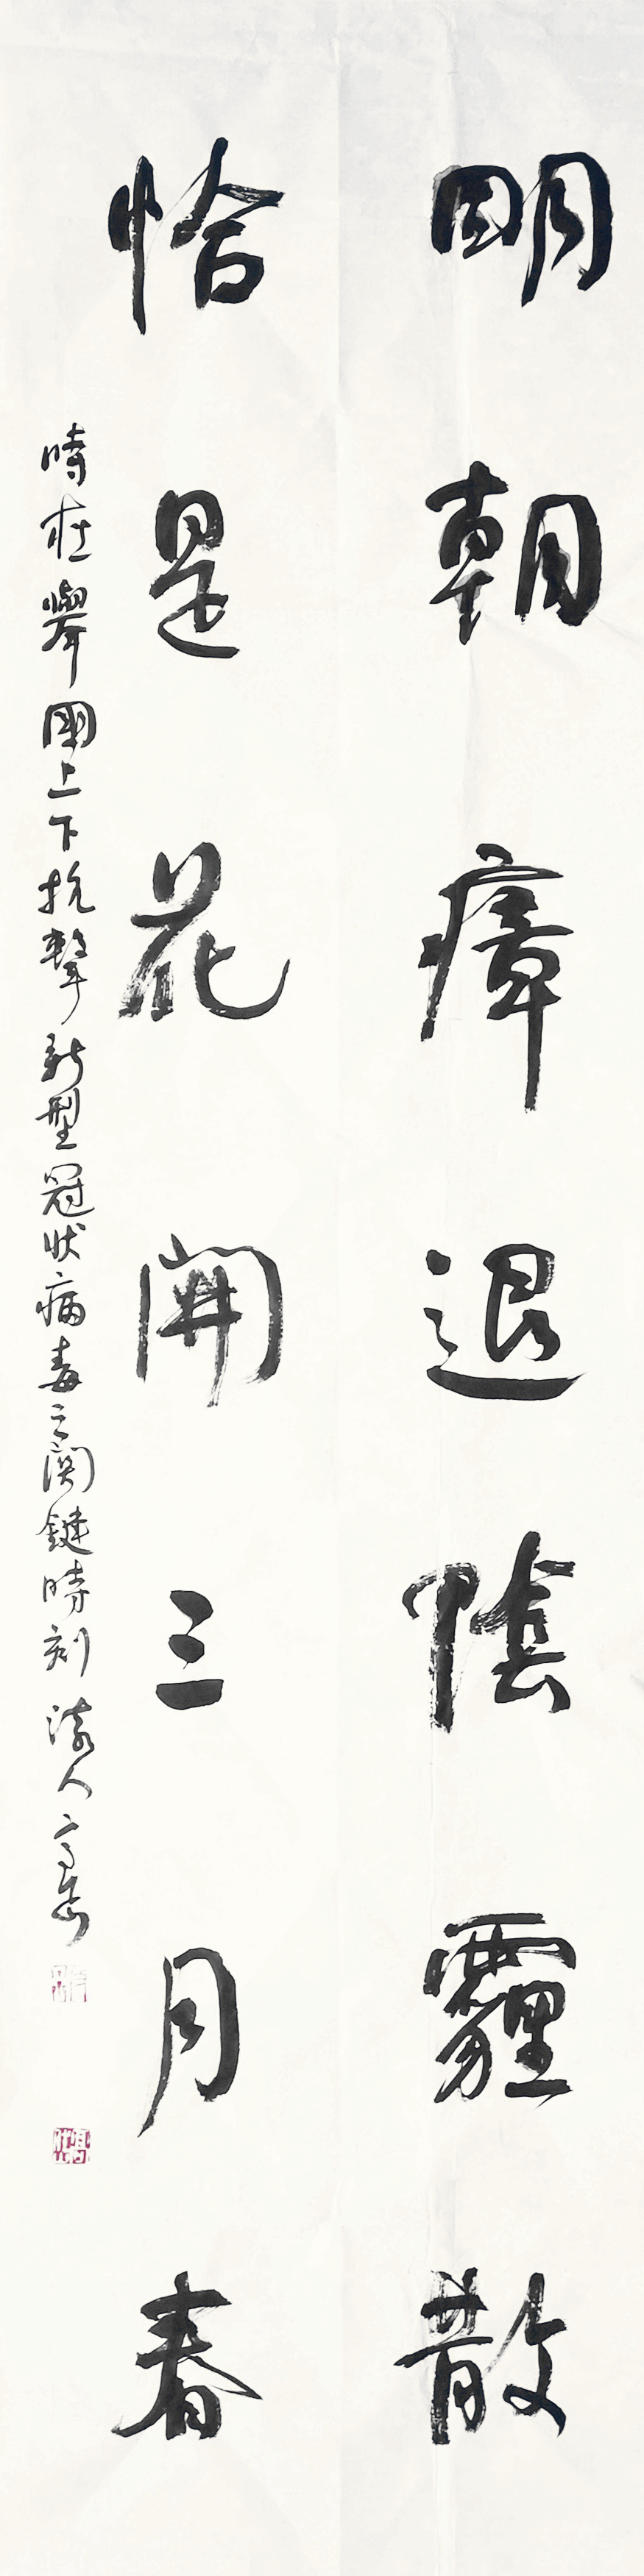 明朝瘴退陰霾散
恰是花開三月春
時在舉國上下抗擊新型冠狀病毒之関鍵時刻